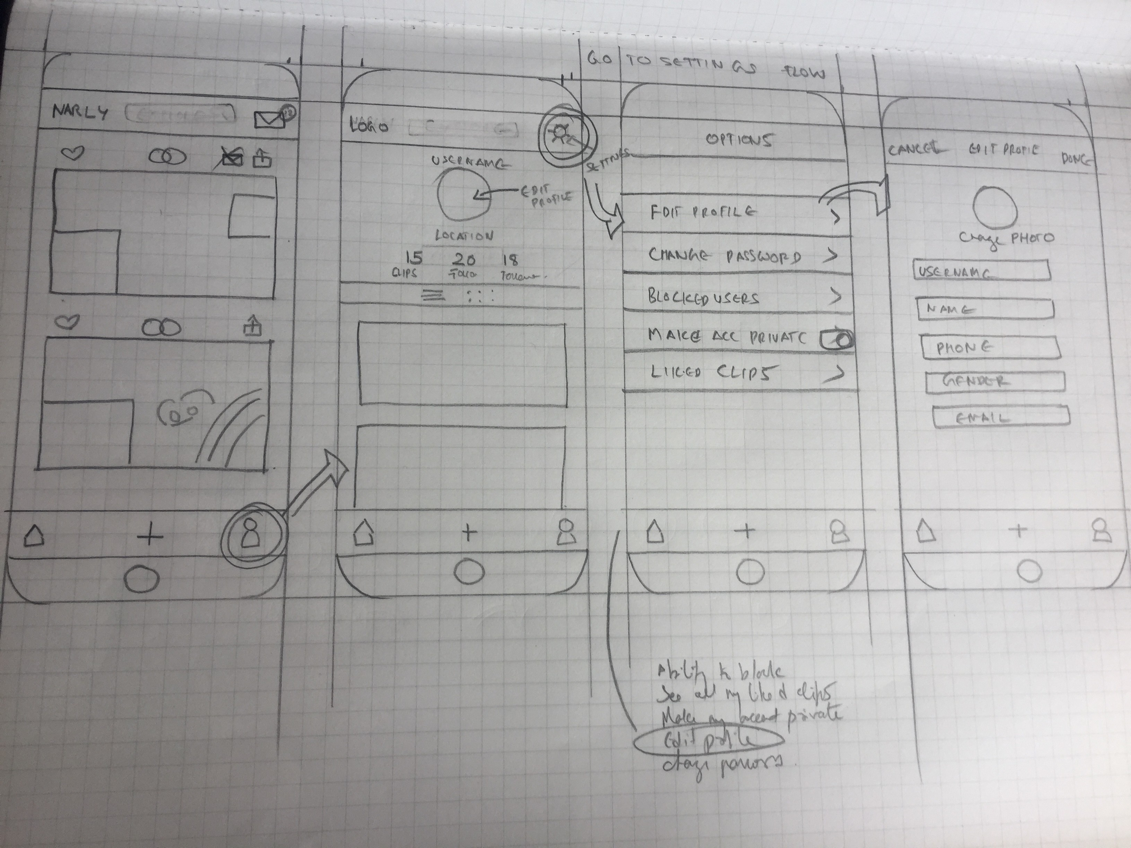 GO TO SETTINGS FLOW
NARLY
LOGO
USERNAME
EDIT
PROFILE
LOCATION
15 20 18
CLIPS Follow
SETTINGS
OPTIONS
EDIT PROFILE
CHANGE PASSWORD
BLOCKED USERS
MAKE ACC PRIVATE
LIKED CLIPS
CANCEL EDIT PROFILE DONE
Change PHOTO
USERNAME
NAME
PHONE
GENDER
EMAIL
Ability to block
See all my liked clips
Make my account private
Edit profile